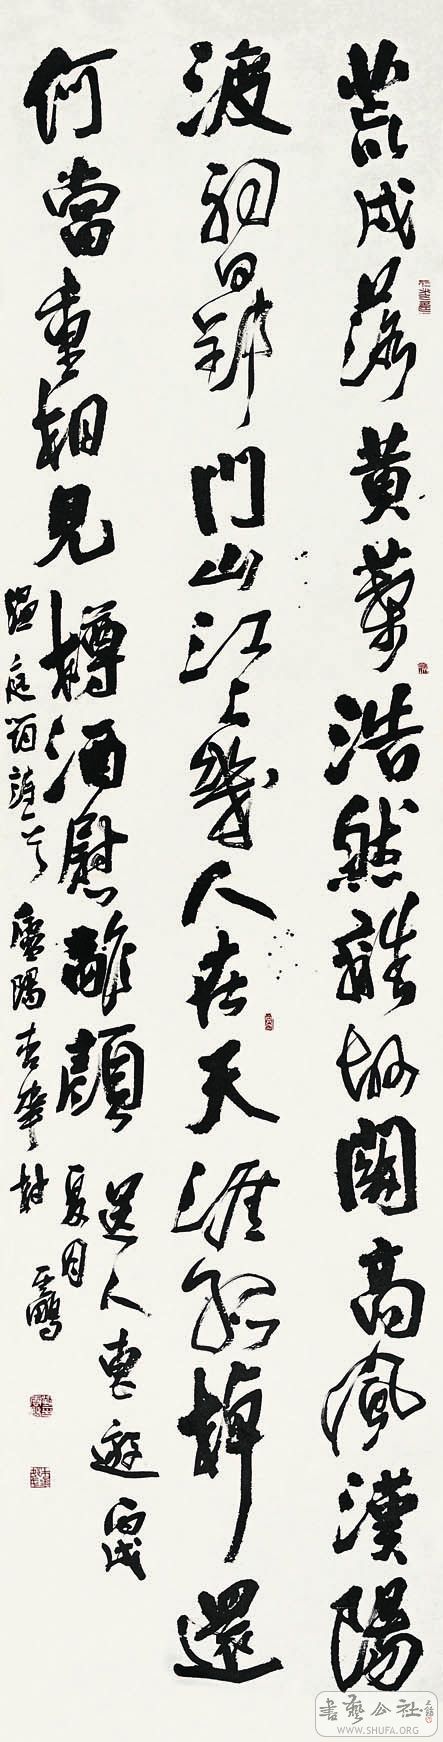 荒戍落黃葉浩然離故關高風漢陽
渡初日郢門山江上幾人在天涯孤棹還
何當重相見樽酒慰離顏
送人東遊丙戌
夏月
温庭筠詩一首
杏華村
書藝公社
WWW.SHUFA.ORG